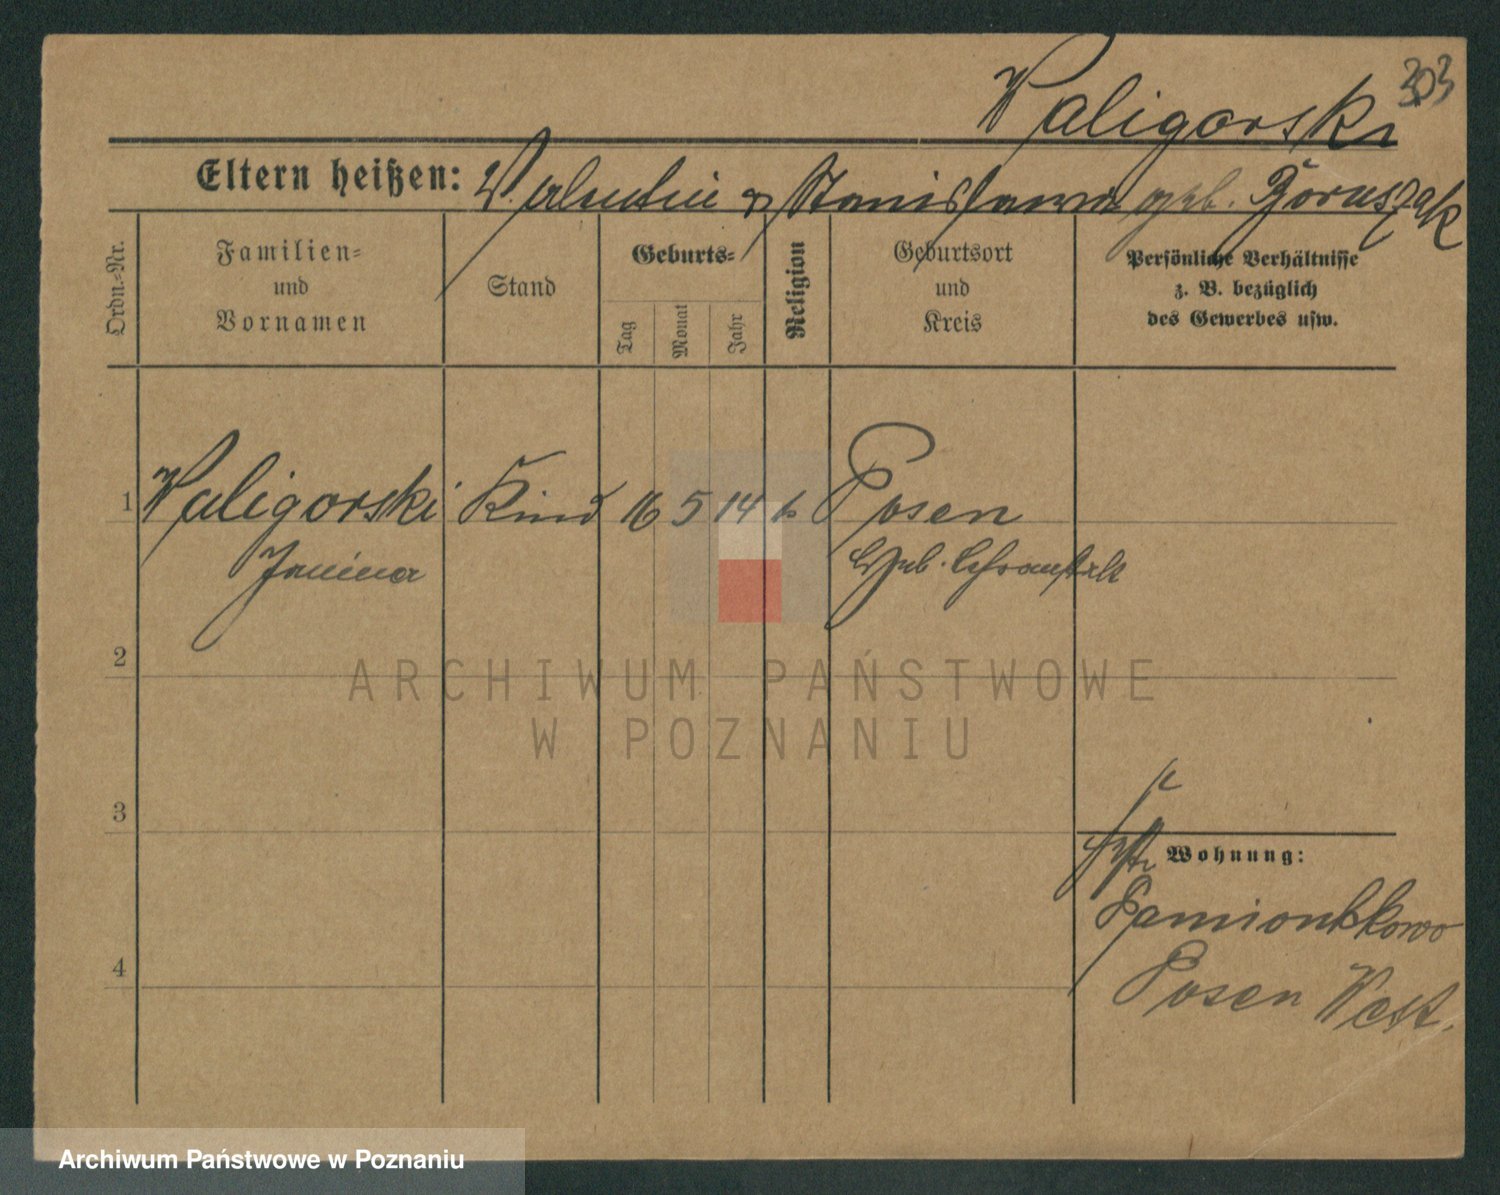 303
Waligorski
Eltern heißen: Valentin & Stanislawa geb. Boruszak
Ordn.=Nr.
Familien=
und
Vornamen
Stand
Geburts=
Tag
Monat
Jahr
Religion
Geburtsort
und
Kreis
Persönliche Verhältnisse
z. B. bezüglich
des Gewerbes usw.
1 Waligorski Kind 16 5 14 k Posen
Janina
2
3
Wohnung:
Pamiontkowo
4
Posen West.
ARCHIWUM PAŃSTWOWE
W POZNANIU
Archiwum Państwowe w Poznaniu